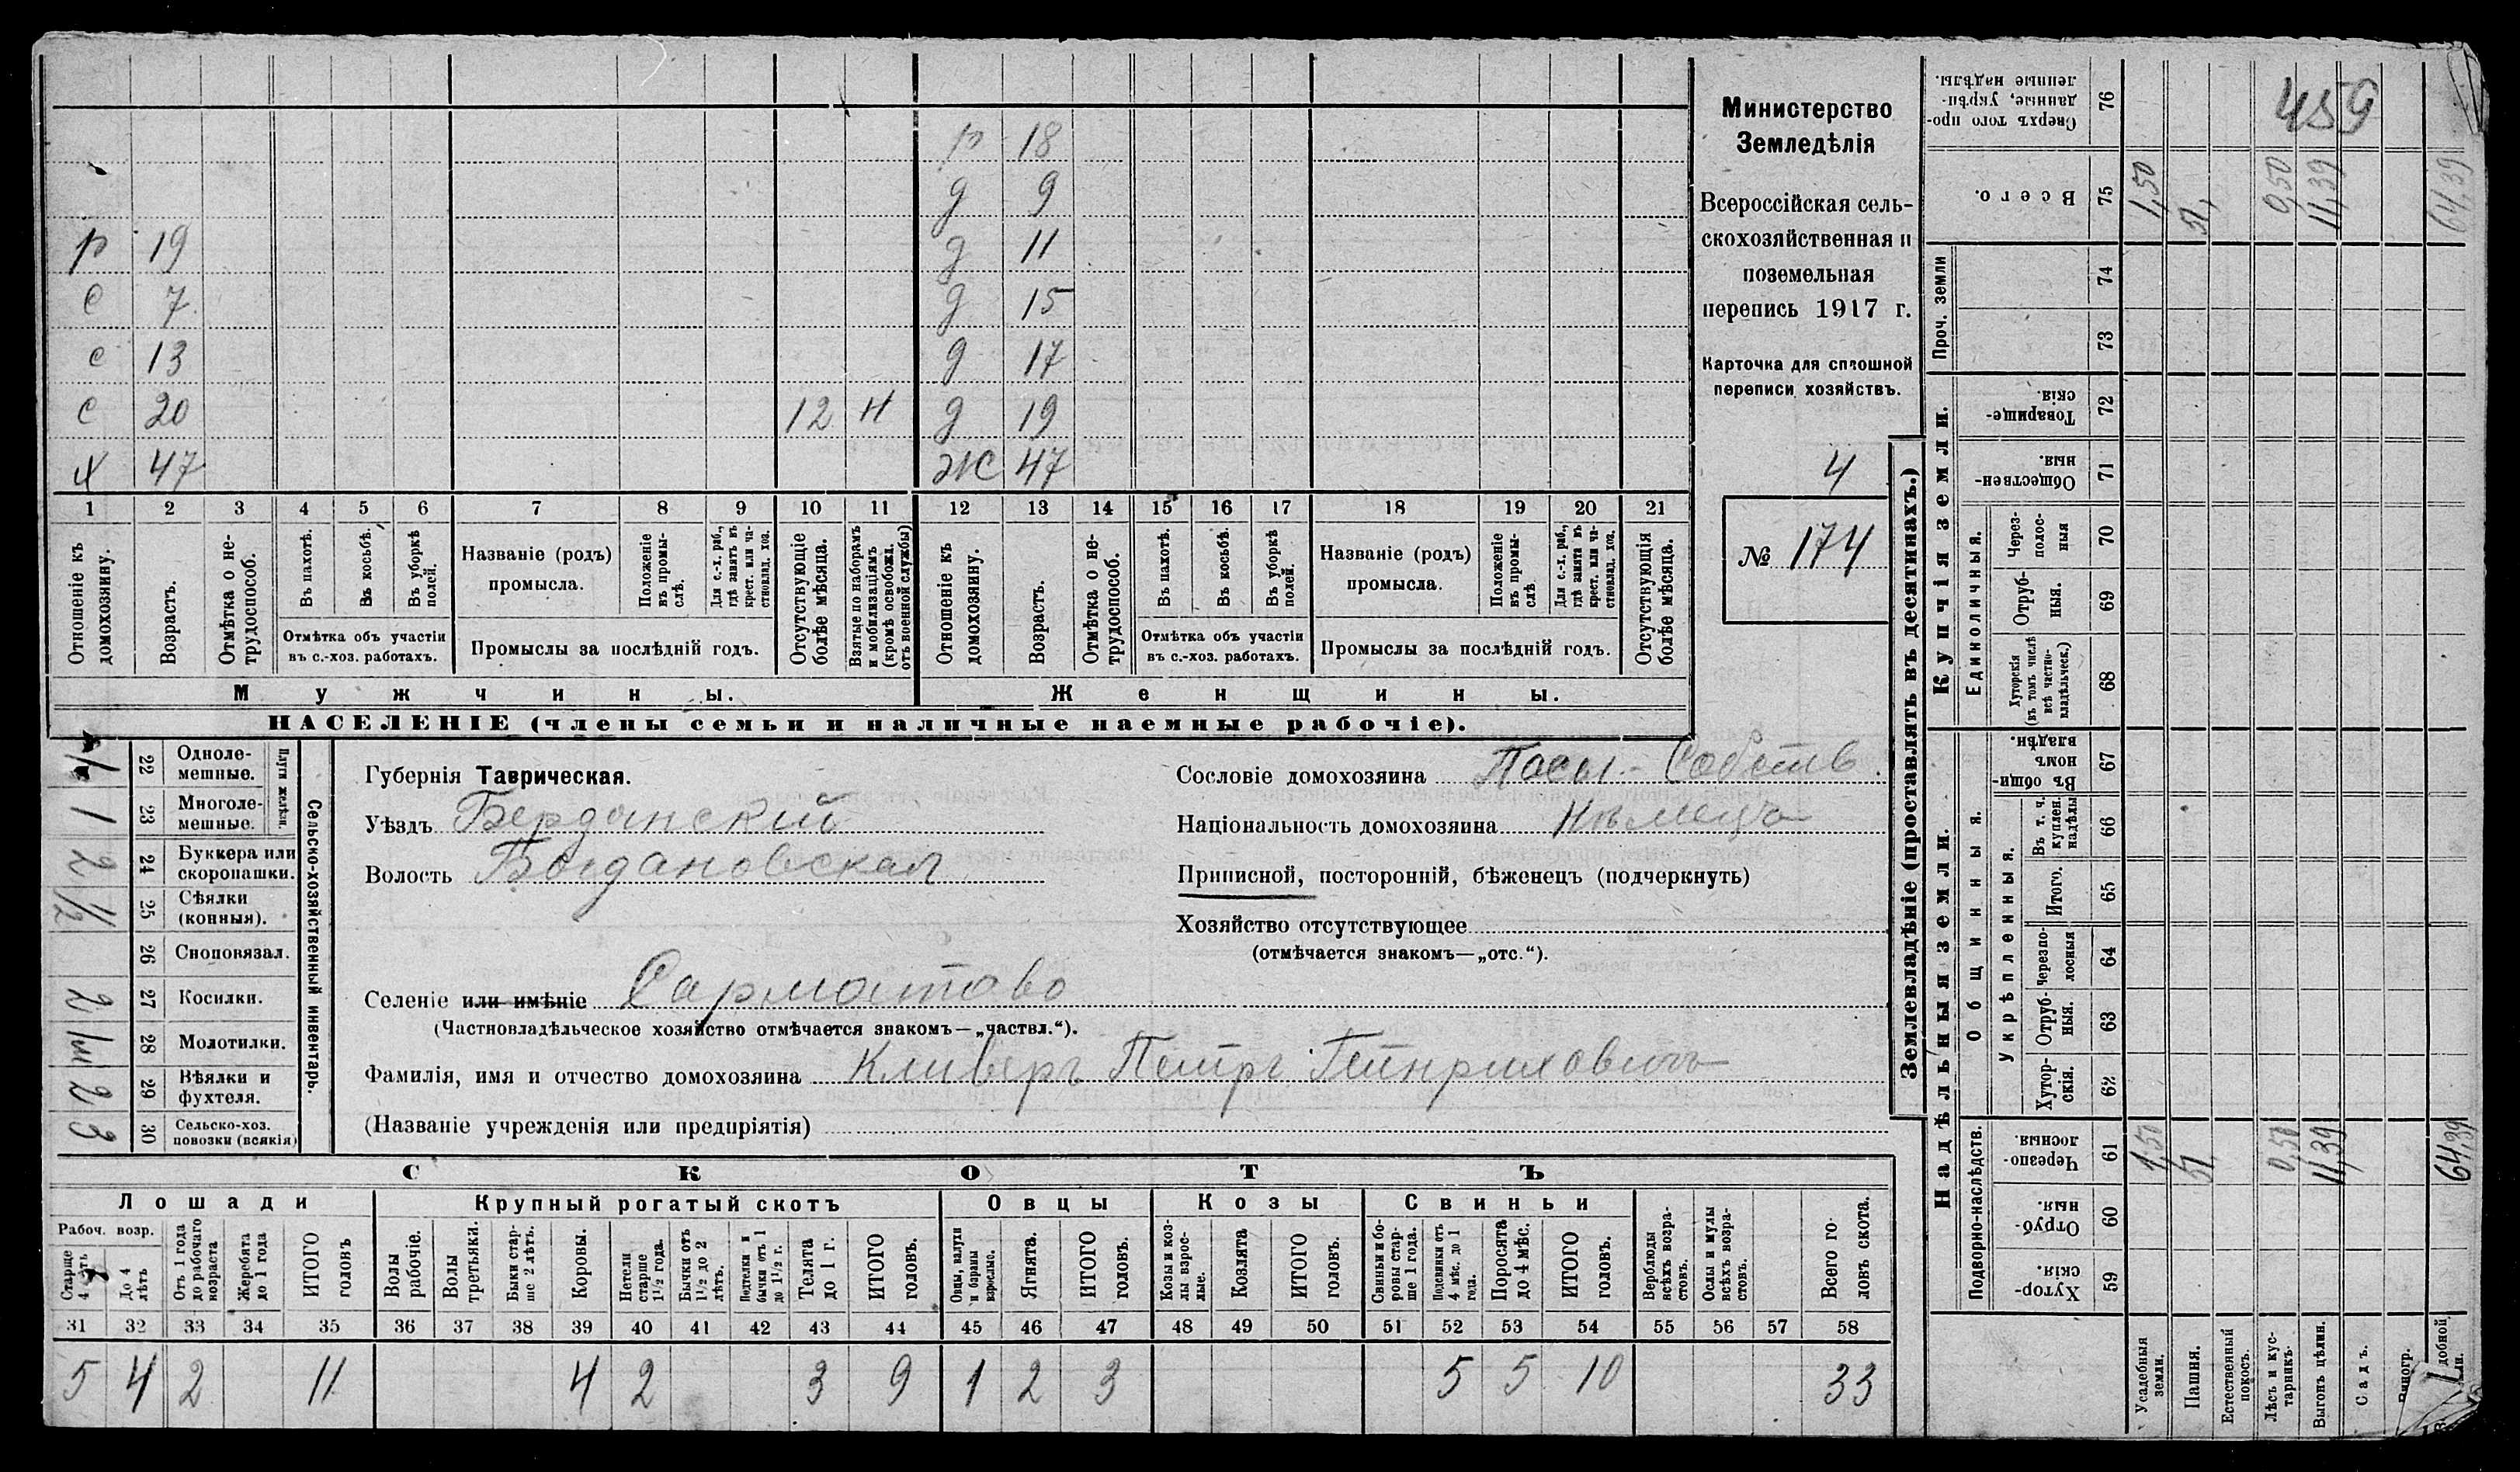 р 18
д 9
р 19 д 11
с 7 д 15
с 13 д 17
с 20 12 Н д 19
Х 47 Ж 47
1 2 3 4 5 6 7 8 9 10 11 12 13 14 15 16 17 18 19 20 21
Отношеніе къ домохозяину.
Возрастъ.
Отмѣтка о не-трудоспособ.
Въ пахотѣ.
Въ косьбѣ.
Въ уборкѣ полей.
Отмѣтка объ участіи
въ с.-хоз. работахъ.
Названіе (родъ)
промысла.
Положеніе въ промы-слѣ.
Для с.-х. раб., гдѣ занятъ въ крест. или ча-стновлад. хоз.
Промыслы за послѣдній годъ.
Отсутствующіе болѣе мѣсяца.
Взятые по наборамъ и мобилизаціямъ (кромѣ освобожд. отъ военной службы)
Отношеніе къ домохозяину.
Возрастъ.
Отмѣтка о не-трудоспособ.
Въ пахотѣ.
Въ косьбѣ.
Въ уборкѣ полей.
Отмѣтка объ участіи
въ с.-хоз. работахъ.
Названіе (родъ)
промысла.
Положеніе въ промы-слѣ
Для с.-х. раб., гдѣ занята въ крест. или ча-стновлад. хоз.
Промыслы за послѣдній годъ.
Отсутствующія болѣе мѣсяца.
Мужчины.
Женщины.
НАСЕЛЕНІЕ (члены семьи и наличные наемные рабочіе).
Министерство
Земледѣлія
Всероссійская сель-
скохозяйственная и
поземельная
перепись 1917 г.
Карточка для сплошной
переписи хозяйствъ.
4
№ 174
Сельско-хозяйственный инвентарь.
Плуги желѣзн.
22 Одноле-
мешные.
1 23 Многоле-
мешные.
2 24 Буккера или
скоропашки.
1/2 25 Сѣялки
(конныя).
26 Сноповязал.
2 27 Косилки.
28 Молотилки.
2 29 Вѣялки и
фухтеля.
3 30 Сельско-хоз.
повозки (всякія)
Губернія Таврическая.
Уѣздъ Бердянский
Волость Богдановская
Селеніе или имѣніе Сарматово
(Частновладѣльческое хозяйство отмѣчается знакомъ—„частвл.“).
Фамилія, имя и отчество домохозяина Кливеръ Петръ Гейнриховичъ
(Названіе учрежденія или предпріятія)
Сословіе домохозяина Посел.- Собств.
Національность домохозяина Нѣмецъ
Приписной, посторонній, бѣженецъ (подчеркнуть)
Хозяйство отсутствующее
(отмѣчается знакомъ—„отс.“).
СКОТЪ
Лошади
Крупный рогатый скотъ
Овцы
Козы
Свиньи
Рабоч. возр.
Старше 4 лѣтъ
До 4 лѣтъ
Отъ 1 года до рабочаго возраста
Жеребята до 1 года
ИТОГО головъ
Волы рабочіе.
Волы третьяки.
Быки стар-ше 2 лѣтъ.
Коровы.
Нетели старше 1½ года.
Бычки отъ 1½ до 2 лѣтъ.
Подтелки и бычки отъ 1 до 1½ г.
Телята до 1 г.
ИТОГО головъ.
Овцы, валухи и бараны взрослые.
Ягнята.
ИТОГО головъ.
Козы и коз-лы взрос-лые.
Козлята
ИТОГО головъ.
Свиньи и бо-ровы стар-ше 1 года.
Подсвинки отъ 4 мѣс. до 1 года.
Поросята до 4 мѣс.
ИТОГО головъ.
Верблюды всѣхъ возра-стовъ.
Ослы и мулы всѣхъ возра-стовъ.
Всего го-ловъ скота.
31 32 33 34 35 36 37 38 39 40 41 42 43 44 45 46 47 48 49 50 51 52 53 54 55 56 57 58
5 4 2 11 4 2 3 9 1 2 3 5 5 10 33
Землевладѣніе (проставлять въ десятинахъ.)
Надѣльныя земли.
Купчія земли.
Проч. земли
Подворно-наслѣдств.
Общинныя.
Укрѣпленныя.
Единоличныя.
Сверхъ того про-данные, укрѣп-ленные надѣлы. 76
459
Всего. 75 1,50 51, 9,50 11,39 64,39
74
73
Товарище-скія. 72
Обществен-ныя. 71
Через-полос-ныя 70
Отруб-ныя. 69
Хуторскія (въ томъ числѣ всѣ частно-владѣльческ.) 68
Въ общи-номъ владѣн. 67
Въ т. ч. куплен. надѣлы 66
Итого. 65
Черезпо-лосныя 64
Отруб-ныя. 63
Хутор-скія. 62
Черезпо-лосныя. 61 1,50 51 0,50 11,39 64,39
Отруб-ныя. 60
Хутор-скія. 59
Усадебныя земли.
Пашня.
Естественный покосъ.
Лѣсъ и кус-тарникъ.
Выгонъ цѣлин.
Садъ.
Виногр.
добной